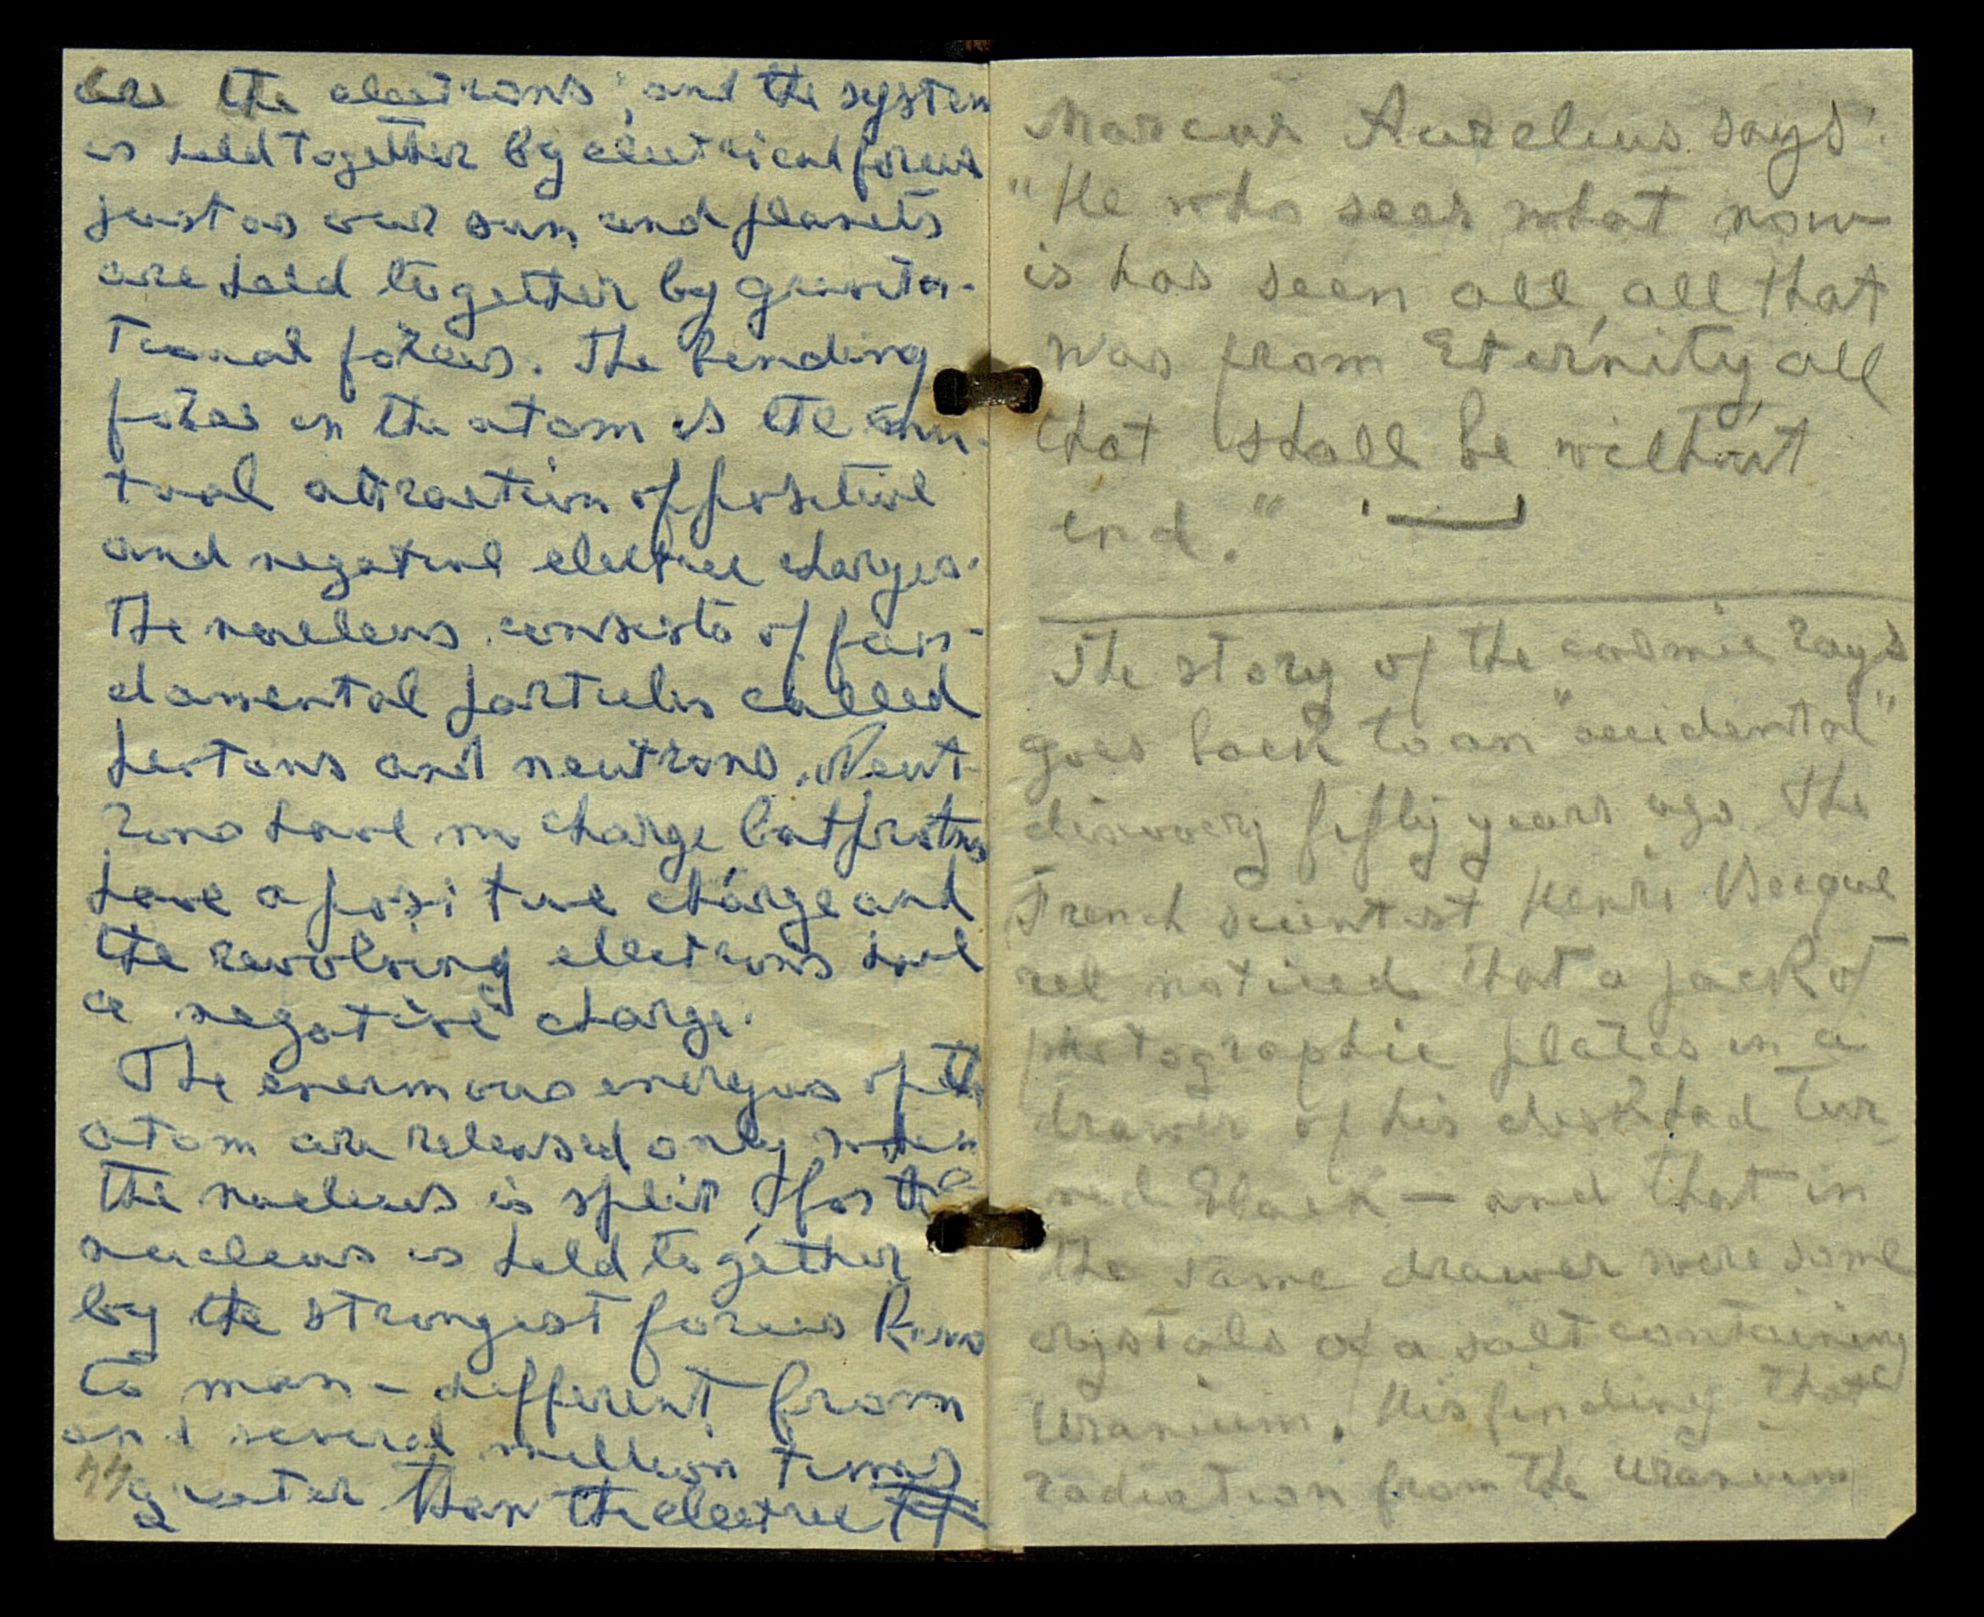 are the electrons, and the system
is held together by electrical forces
just as our sun and planets
are held together by gravita-
tional forces. The bending
forces in the atom is the mu-
tual attraction of positive
and negative electric charges.
The nucleus consists of fun-
damental particles called
protons and neutrons. Neut-
rons have no charge but protons
have a positive charge and
the revolving electrons have
a negative charge.
The enermous energies of the
atom are released only when
the nucleus is split, for the
nucleus is held together
by the strongest forces known
to man - different from
and several million times
greater than the electric
44
Marcus Aurelius says:
"He who sees what now
is has seen all, all that
was from Eternity, all
that shall be without
end."
The story of the cosmic rays
goes back to an "accidental"
discovery fifty years ago. The
French scientist Henri Becque
rel noticed that a pack of
photographic plates in a
drawer of his desk had tur
ned black — and that in
the same drawer were some
crystals of a salt containing
Uranium. His finding that
radiation from the uranium